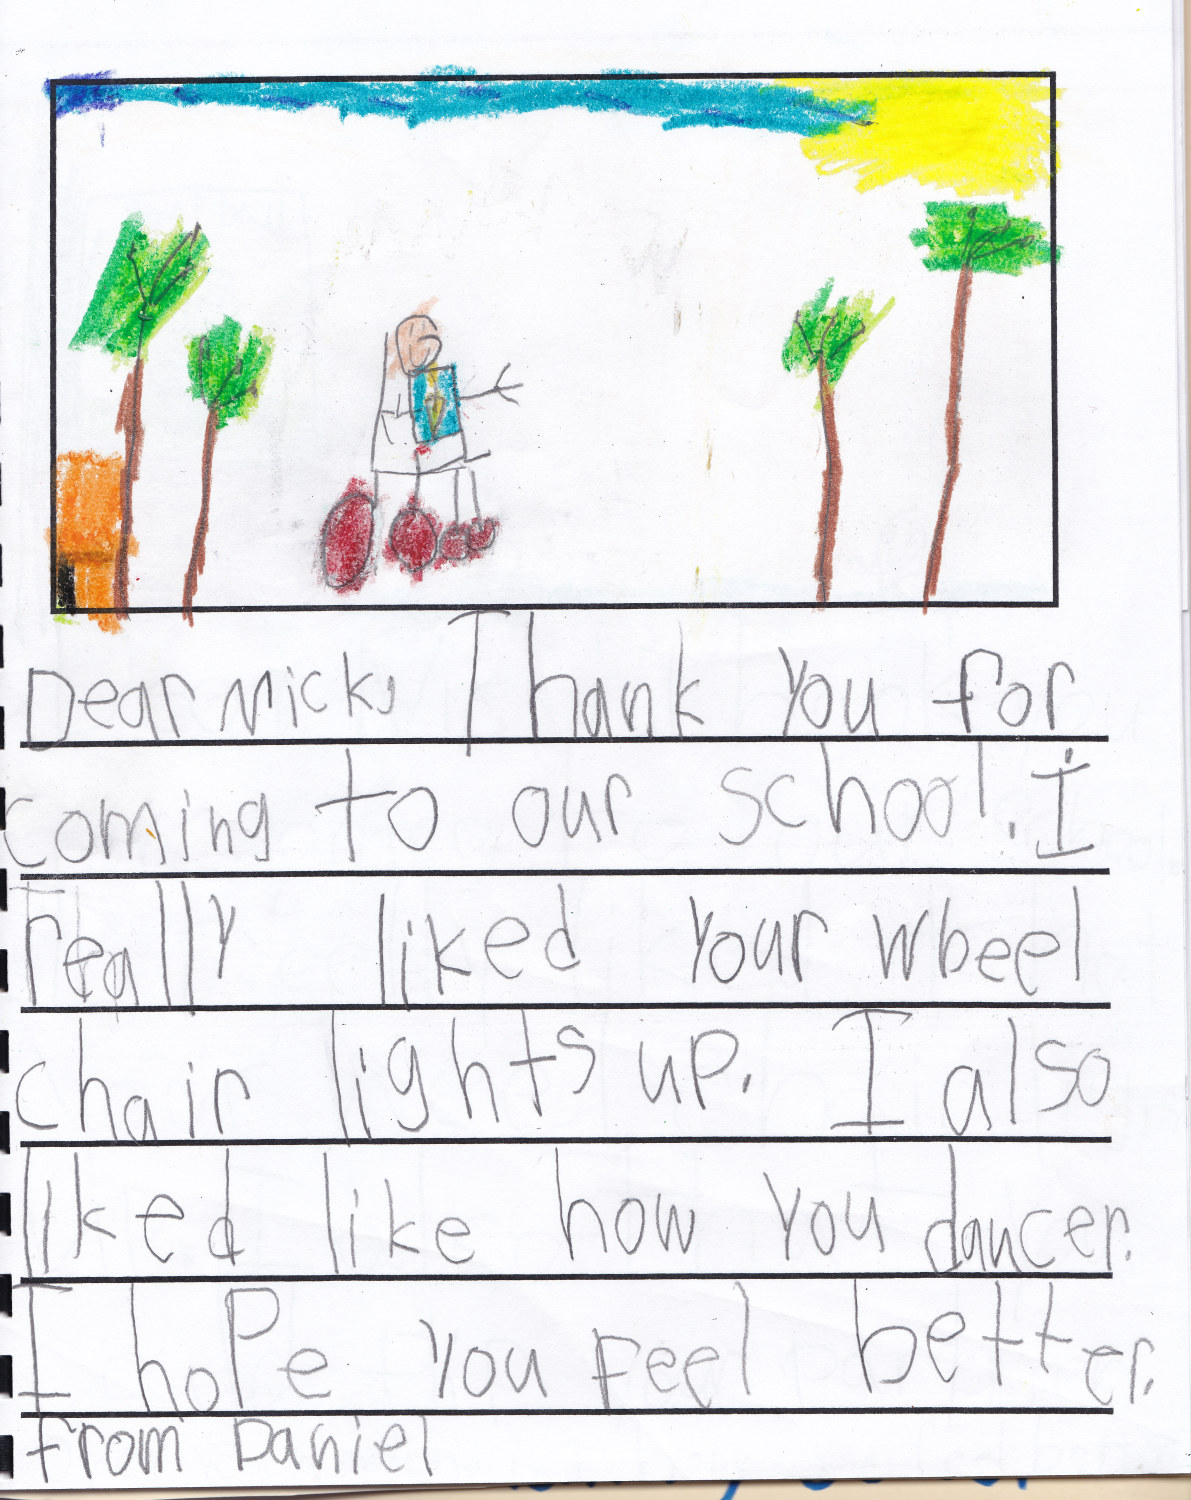 Dear Nick, Thank you for
coming to our school. I
really liked your wheel
chair lights up. I also
liked like how you dancer.
I hope you feel better.
from Daniel